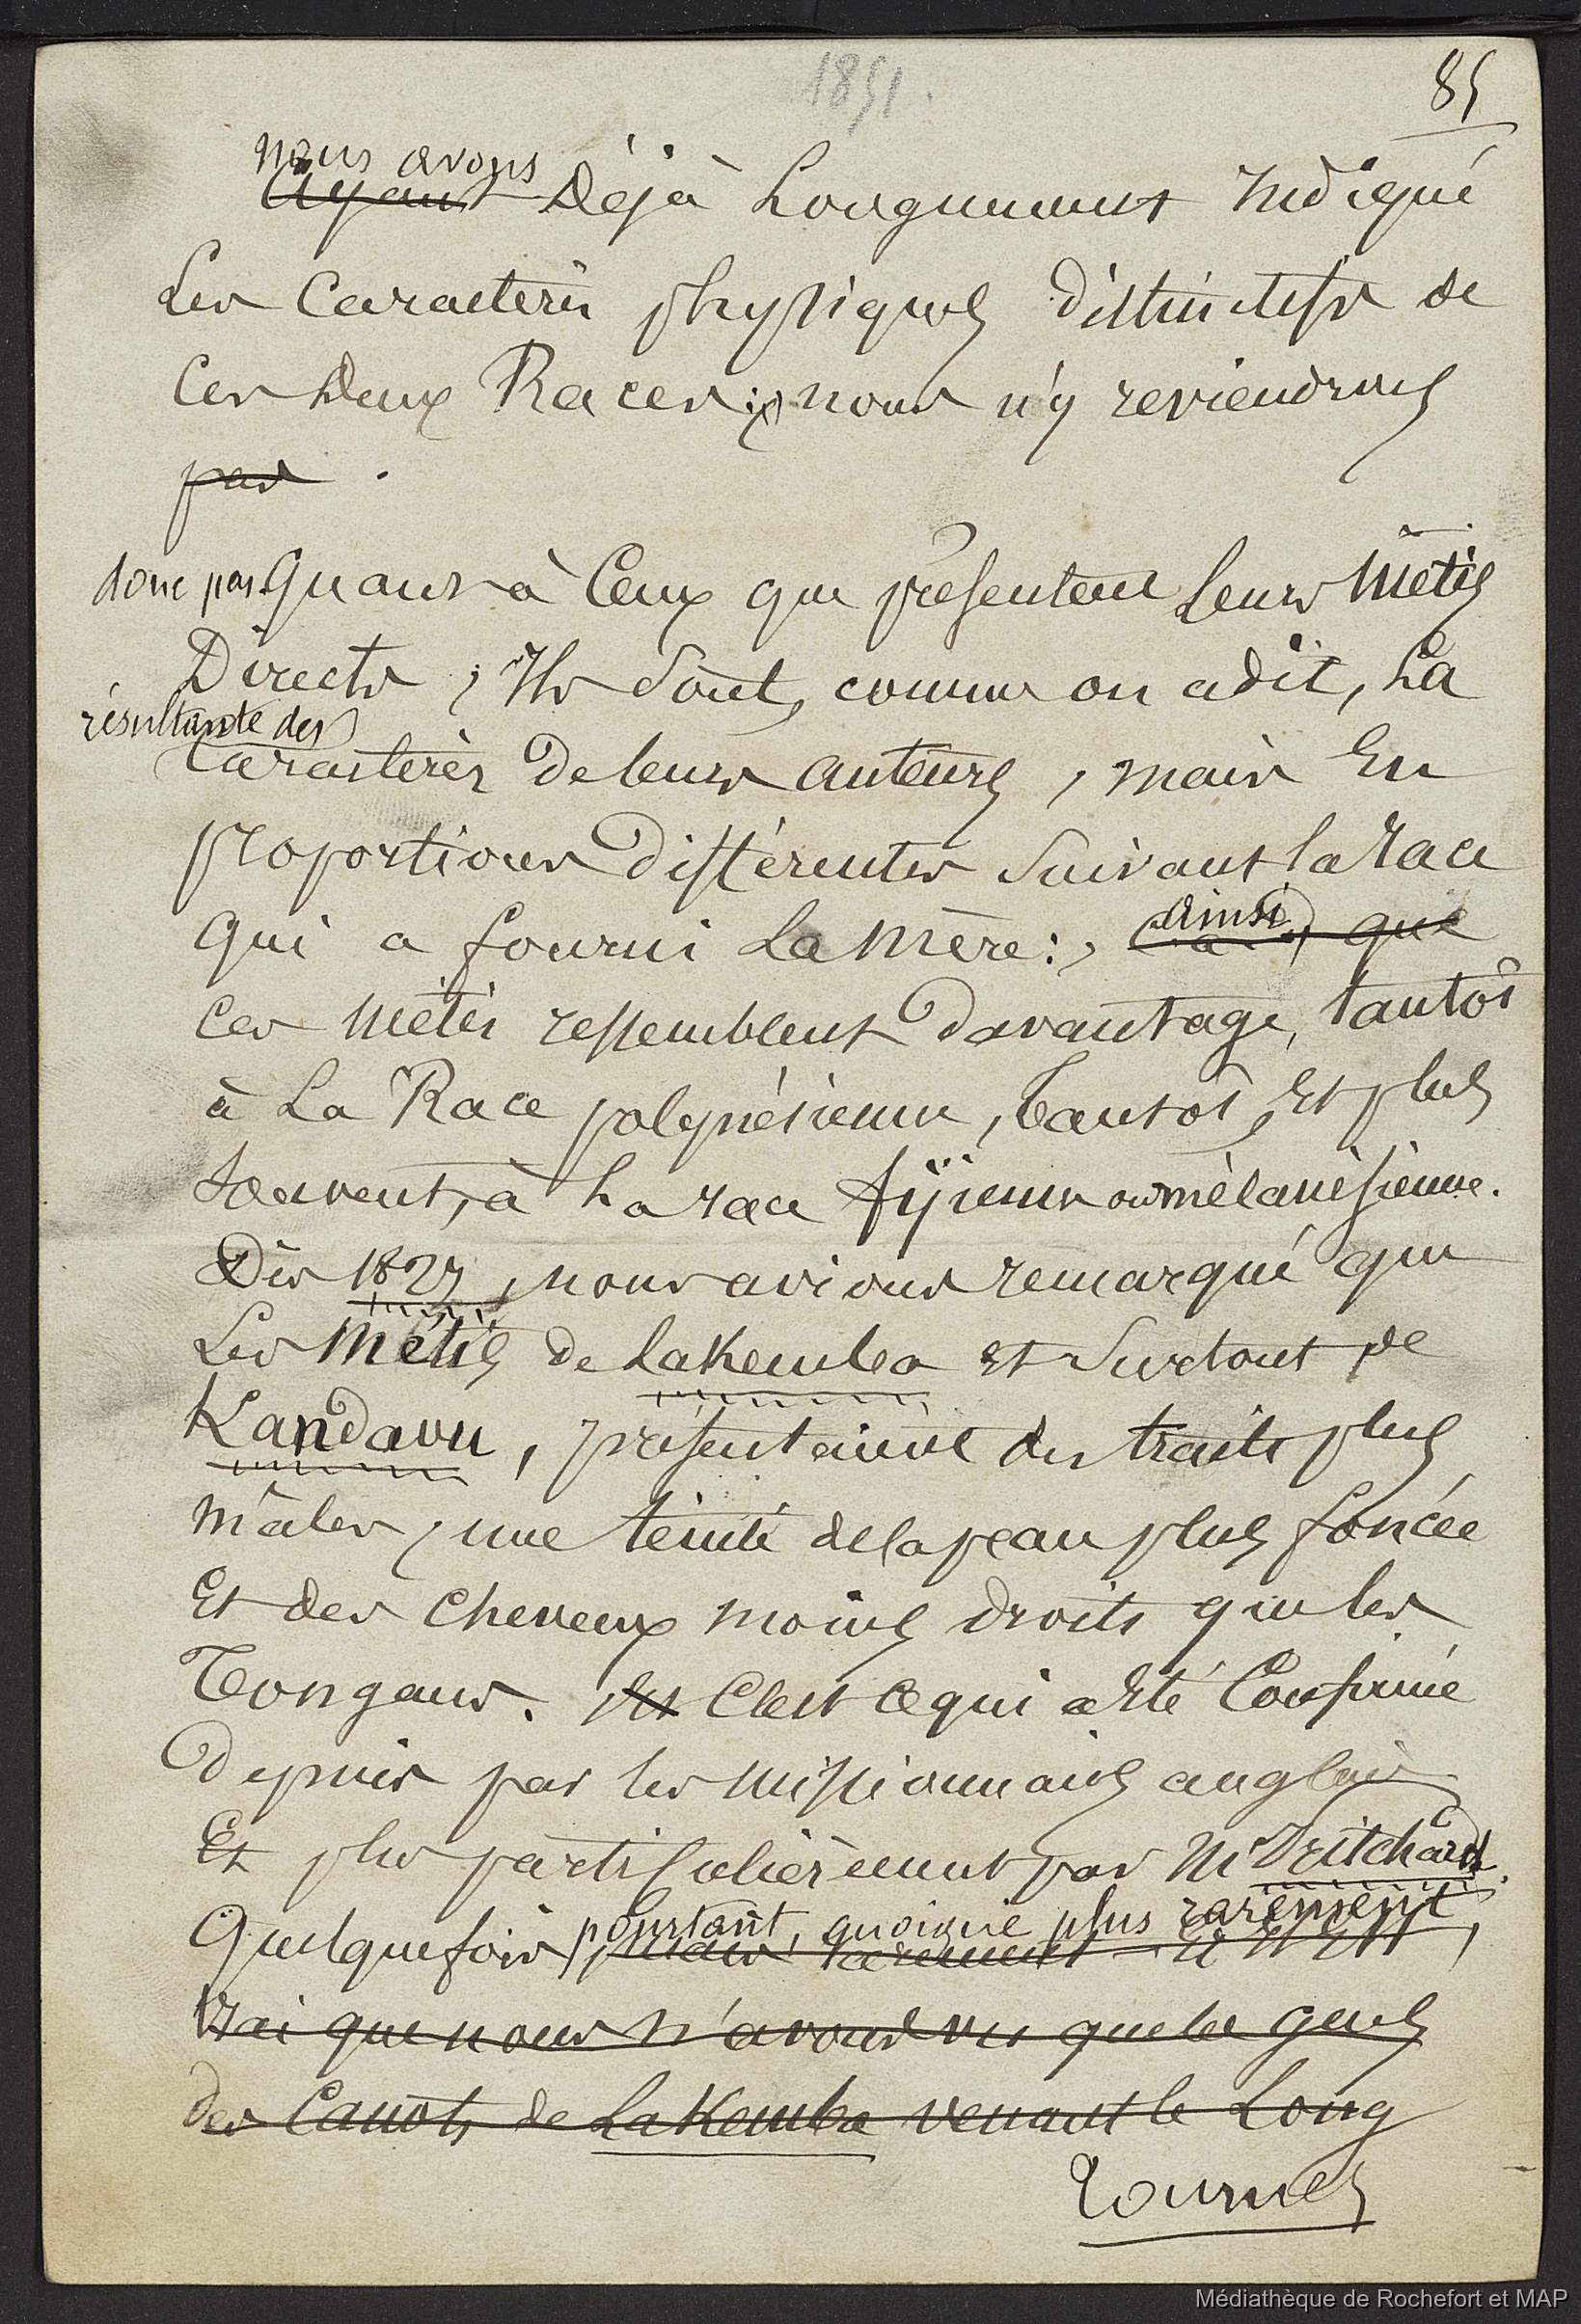 1851.
85
nous avons
Ayant Déjà Longuement Indiqué
Les Caractères physiques distinctifs de
Ces Deux Races; nous n'y reviendrons
pas.
donc pas. Quant à Ceux que présentent Leurs Métis
Directs, Ils Sont, comme on a dit, La
résultante des
Caractères de leurs auteurs, mais En
proportions différentes Suivant la race
qui a fourni La Mère:, ainsi, que
Ces Métis ressemblent davantage, tantôt
à La Race polynésienne, tantôt, Et plus
Souvent, à La race fijienne ou mélanésienne.
Dès 1827, nous avions remarqué que
Les Métis de Lakemba et Surtout de
Kandavu, présentaient des traits plus
mâles, une teinte de la peau plus foncée
Et des Cheveux moins droits que les
Tongans. Et C'est ce qui a Eté Confirmé
depuis par les Missionnaires anglais
Et plus particulièrement par Mr Pritchard.
pourtant, quoique plus rarement,
Quelquefois, mais rarement il Est
Vrai que nous n'avons vu que les gens
des Canots de Lakemba venant le Long
Tournez
Médiathèque de Rochefort et MAP